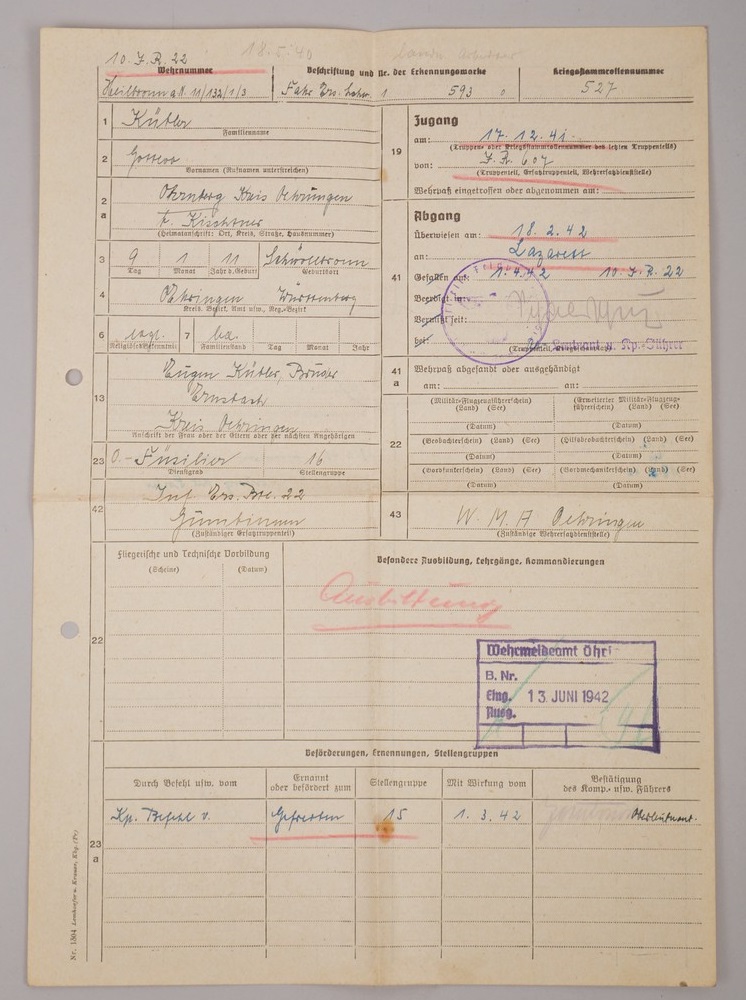 10. J.R. 22
18.5.40
Wehrnummer
Beschriftung und Nr. der Erkennungsmarke
Kriegsstammrollennummer
Heilbronn a.N. 11/132/1/3
Fahr Ers. 1 593
527
1 Kübler
Familienname
2
Vornamen (Rufnamen unterstreichen)
2a Ohrnberg Kreis Oehringen
(Heimatanschrift: Ort, Kreis, Straße, Hausnummer)
3 9 1 11
Tag Monat Jahr d. Geburt Geburtsort
4 Öhringen Württemberg
Kreis, Bezirk, Amt usw., Reg.-Bezirk
6 evgl. 7
Religiöses Bekenntnis Familienstand Tag Monat Jahr
Eugen Kübler, Bruder
13 Ernsbach
Kreis Oehringen
Anschrift der Frau oder der Eltern oder der nächsten Angehörigen
23 O.-Füsilier 16
Dienstgrad Stellengruppe
Inf. Ers. Btl. 22
42 Gumbinnen
(Zuständiger Ersatztruppenteil)
Zugang
19 am: 17.12.41.
(Truppen- oder Kriegsstammrollennummer des letzten Truppenteils)
von: J.R. 607
(Truppenteil, Ersatztruppenteil, Wehrersatzdienststelle)
Wehrpaß eingetroffen oder abgenommen am:
Abgang
Überwiesen am: 18.2.42
an: Lazarett
41 Gefallen am: 1.4.42 10. J.R. 22
Beerdigt in:
Vermißt seit:
bei:
Leutnant u. Kp.-Führer
41a Wehrpaß abgesandt oder ausgehändigt
am: an:
(Militär-Flugzeugführerschein) (Land) (See)
(Erweiterter Militär-Flugzeugführerschein) (Land) (See)
(Datum) (Datum)
22 (Beobachterschein) (Land) (See) (Hilfsbeobachterschein) (Land) (See)
(Datum) (Datum)
(Bordfunkerschein) (Land) (See) (Bordmechanikerschein) (Land) (See)
(Datum) (Datum)
43 W. M. A Oehringen
(Zuständige Wehrersatzdienststelle)
Fliegerische und Technische Vorbildung
(Scheine) (Datum)
Besondere Ausbildung, Lehrgänge, Kommandierungen
Ausbildung
22
Wehrmeldeamt Öhri
B. Nr.
Eing. 13. JUNI 1942
Ausg.
Beförderungen, Ernennungen, Stellengruppen
Durch Befehl usw. vom
Ernannt oder befördert zum
Stellengruppe
Mit Wirkung vom
Bestätigung des Komp.- usw. Führers
Kp. Befehl v. Gefreiten 15 1.3.42 Oberleutnant.
23a
Nr. 1304